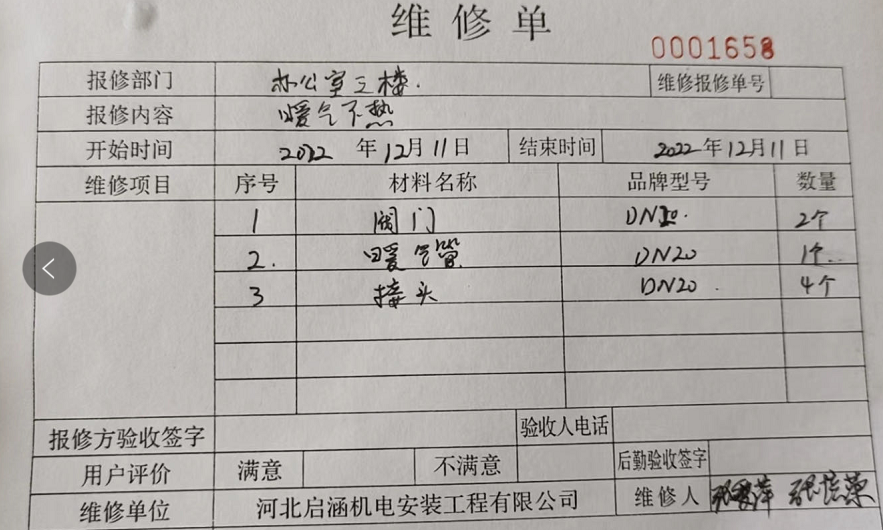 维修单
0001658
报修部门 办公室三楼. 维修报修单号
报修内容 暖气不热
开始时间 2022 年 12月 11日 结束时间 2022年12月11日
维修项目 序号 材料名称 品牌型号 数量
1 阀门 DN20. 2个
2. 暖气管 DN20 1个..
3 接头 DN20. 4个
报修方验收签字 验收人电话
用户评价 满意 不满意 后勤验收签字
维修单位 河北启涵机电安装工程有限公司 维修人